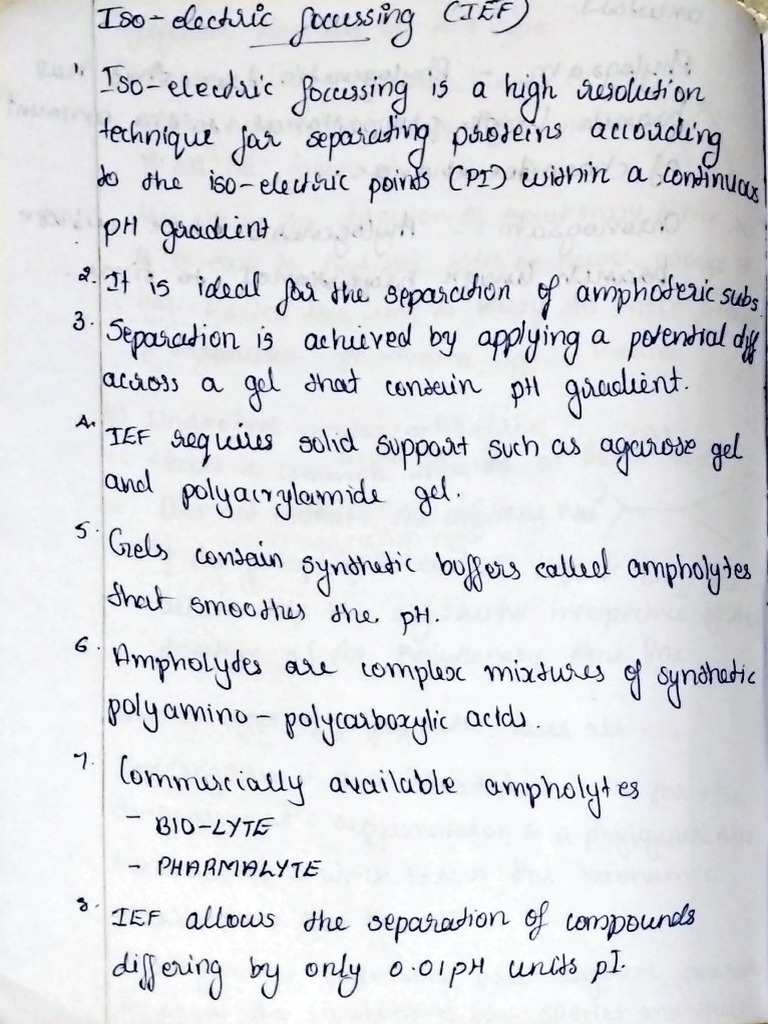 Iso-electric focussing (IEF)
1. Iso-electric focussing is a high resolution
technique for separating proteins according
to the iso-electric points (PI) within a continuous
pH gradient.
2. It is ideal for the separation of amphoteric subs
3. Separation is achieved by applying a potential diff
across a gel that contain pH gradient.
4. IEF requires solid support such as agarose gel
and polyacrylamide gel.
5. Gels contain synthetic buffers called ampholytes
that smoothes the pH.
6. Ampholytes are complex mixtures of synthetic
polyamino - polycarboxylic acids.
7. Commercially available ampholytes
- BIO-LYTE
- PHARMALYTE
8. IEF allows the separation of compounds
differing by only 0.01 pH units pI.